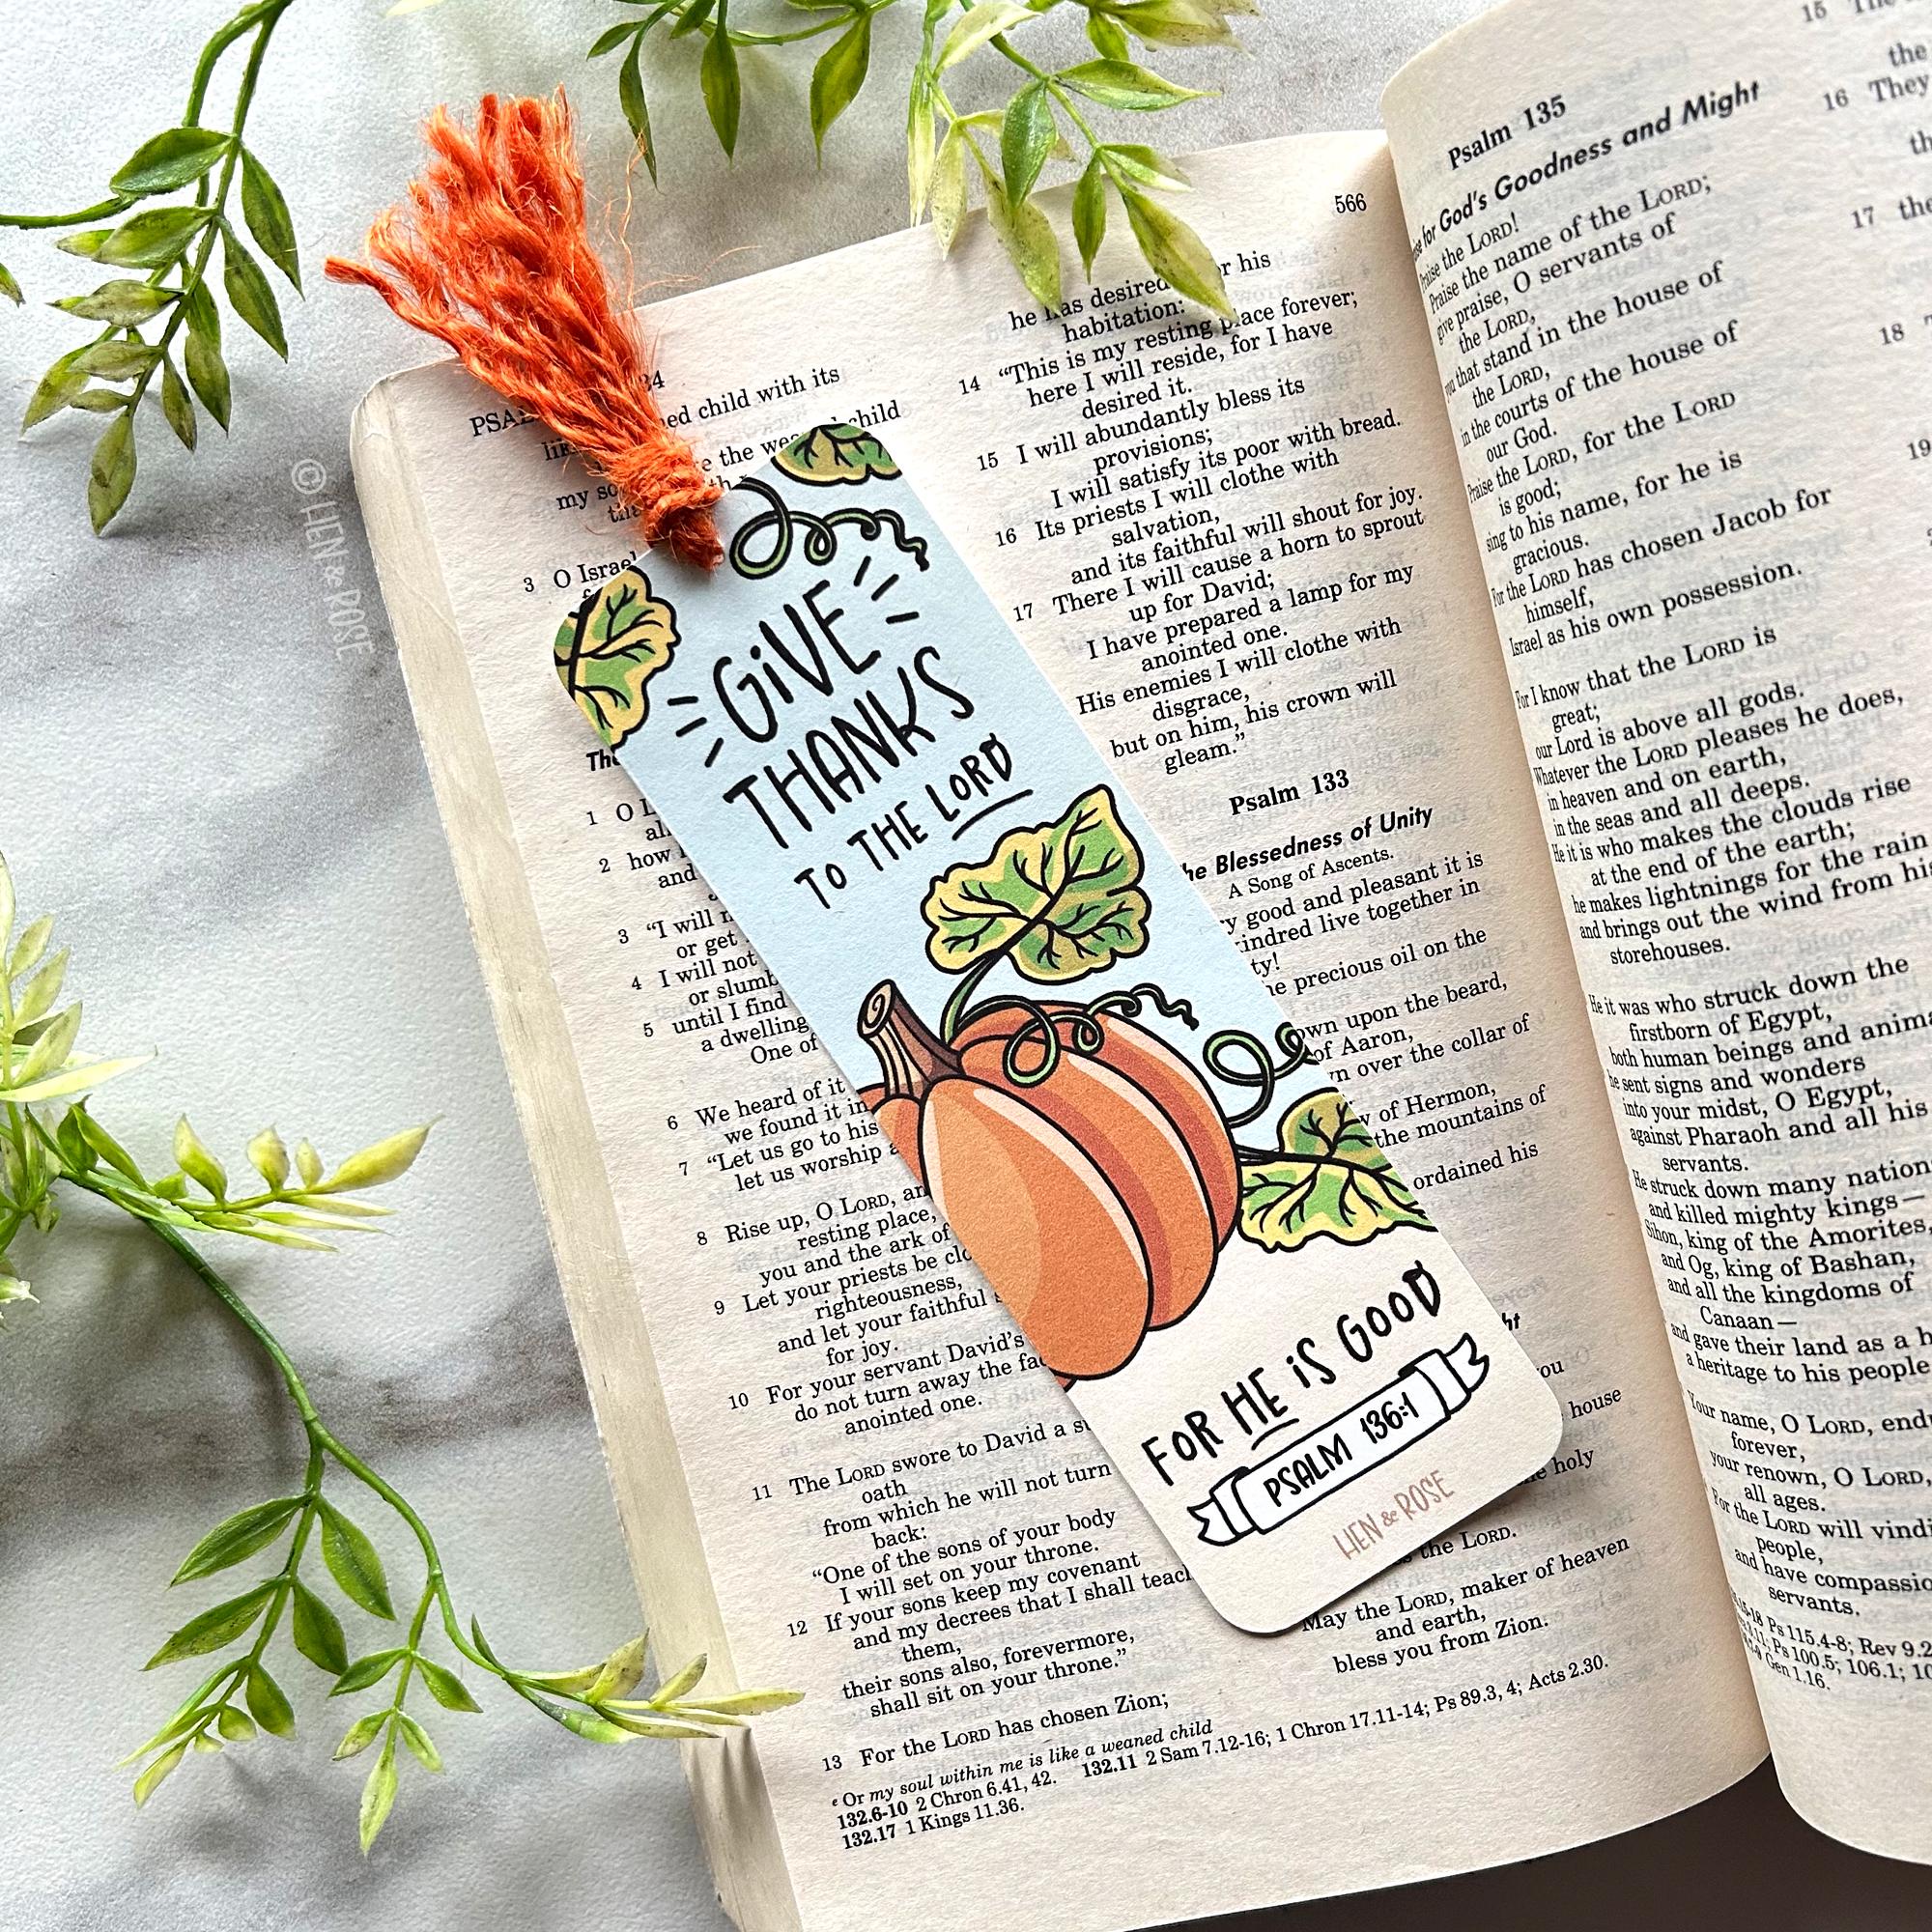 GIVE
THANKS
TO THE LORD
FOR HE IS GOOD
PSALM 136:1
HEN & ROSE
© HEN & ROSE
566
like ed child with its
my so e the child
3 O Israel
1 O L
2 how
and
3 “I will
or get
4 I will not
or slumb
5 until I find
a dwelling
One of
6 We heard of it
we found it in
7 “Let us go to his
let us worship
8 Rise up, O LORD, an
resting place,
you and the ark of
9 Let your priests be clo
righteousness,
and let your faithful
for joy.
10 For your servant David’s
do not turn away the fac
anointed one.
11 The LORD swore to David a su
oath
from which he will not turn
back:
“One of the sons of your body
I will set on your throne.
12 If your sons keep my covenant
and my decrees that I shall teach
them,
their sons also, forevermore,
shall sit on your throne.”
13 For the LORD has chosen Zion;
e Or my soul within me is like a weaned child
132.6-10 2 Chron 6.41, 42. 132.11 2 Sam 7.12-16; 1 Chron 17.11-14; Ps 89.3, 4; Acts 2.30.
132.17 1 Kings 11.36.
he has desired r his
habitation:
14 “This is my resting place forever;
here I will reside, for I have
desired it.
15 I will abundantly bless its
provisions;
I will satisfy its poor with bread.
16 Its priests I will clothe with
salvation,
and its faithful will shout for joy.
17 There I will cause a horn to sprout
up for David;
I have prepared a lamp for my
anointed one.
His enemies I will clothe with
disgrace,
but on him, his crown will
gleam.”
Psalm 133
he Blessedness of Unity
A Song of Ascents.
ry good and pleasant it is
kindred live together in
ty!
he precious oil on the
own upon the beard,
of Aaron,
n over the collar of
of Hermon,
the mountains of
ordained his
you
house
holy
the LORD.
May the LORD, maker of heaven
and earth,
bless you from Zion.
Psalm 135
for God’s Goodness and Might
Praise the LORD!
Praise the name of the LORD;
give praise, O servants of
the LORD,
you that stand in the house of
the LORD,
in the courts of the house of
our God.
Praise the LORD, for the LORD
is good;
sing to his name, for he is
gracious.
For the LORD has chosen Jacob for
himself,
Israel as his own possession.
For I know that the LORD is
great;
our Lord is above all gods.
Whatever the LORD pleases he does,
in heaven and on earth,
in the seas and all deeps.
He it is who makes the clouds rise
at the end of the earth;
he makes lightnings for the rain
and brings out the wind from his
storehouses.
He it was who struck down the
firstborn of Egypt,
both human beings and anima
he sent signs and wonders
into your midst, O Egypt,
against Pharaoh and all his
servants.
He struck down many nation
and killed mighty kings—
Sihon, king of the Amorites,
and Og, king of Bashan,
and all the kingdoms of
Canaan—
and gave their land as a h
a heritage to his people
Your name, O LORD, endu
forever,
your renown, O LORD,
all ages.
For the LORD will vindi
people,
and have compassio
servants.
Ps 115.4-8; Rev 9.2
Ps 100.5; 106.1; 10
Gen 1.16.
15 The
the
16 They
th
17 the
18
19